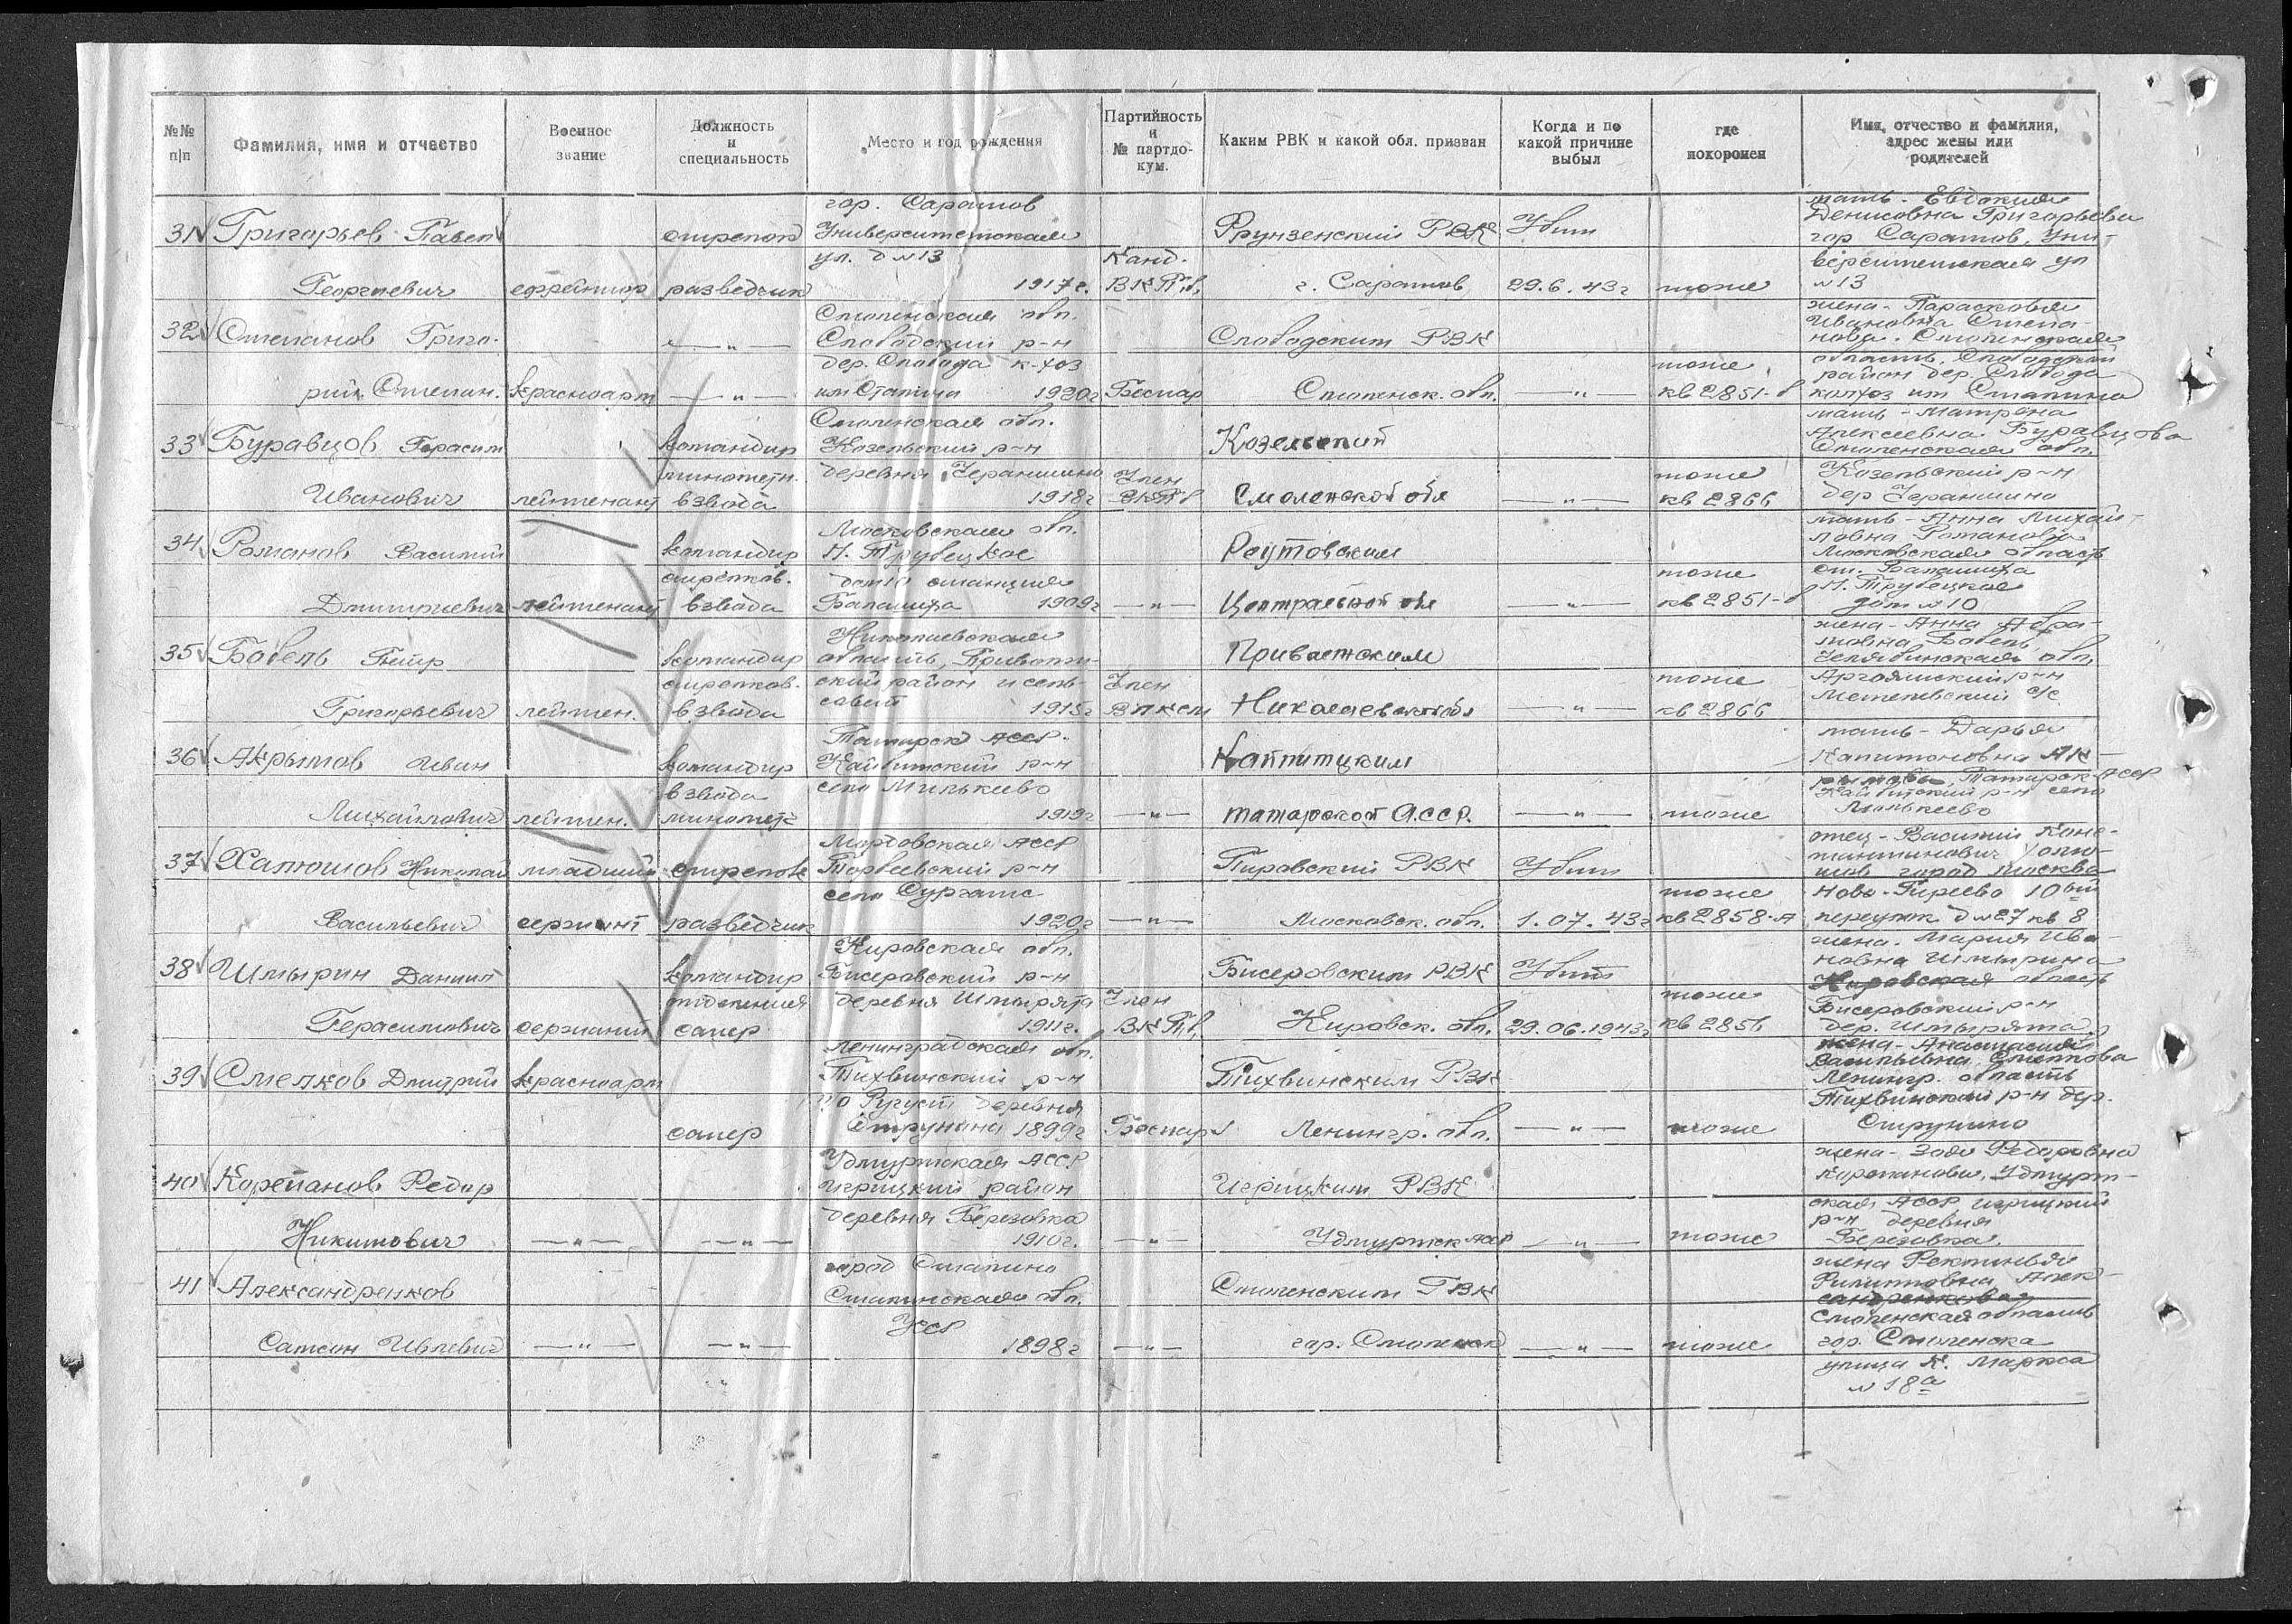 №№ п|п
Фамилия, имя и отчество
Военное звание
Должность и специальность
Место и год рождения
Партийность и № партдокум.
Каким РВК и какой обл. призван
Когда и по какой причине выбыл
где похоронен
Имя, отчество и фамилия, адрес жены или родителей
31 Григорьев Павел
Георгиевич
ефрейтор
стрелок
разведчик
гор. Саратов
Университетская
ул. д №13
1917г.
Канд.
ВКП(б)
Фрунзенский РВК
г. Саратов
Убит
29.6.43г
тоже
мать - Евдокия
Денисовна Григорьева
гор Саратов, Уни-
верситетская ул
№13
32 Степанов Григо-
рий Степан.
Красноарм
— " —
— " —
Смоленская обл.
Слободский р-н
дер. Слобода к-хоз
им Сталина 1920г
Беспар
Слободским РВК
Смоленск. обл.
— " —
тоже
кв 2851-б
жена - Парасковья
Ивановна Степа-
нова. Смоленская
область, Слободский
район дер. Слобода
колхоз им Сталина
33 Буравцов Герасим
Иванович
лейтенант
командир
минометн.
взвода
Смоленская обл.
Козельский р-н
деревня
1918г
Член
Козельский
Смоленской обл
— " —
тоже
кв 2866
мать - Матрена
Алексеевна Буравцова
Смоленская обл.
Козельский р-н
дер
34 Романов Василий
Дмитриевич
лейтенант
командир
стрелков.
взвода
Московская обл.
Н. Трубецкое
дом 10 станция
Балашиха 1909г
— " —
Реутовским
Центральной обл
— " —
тоже
кв 2851-б
мать - Анна Михай-
ловна Романова
Московская область
ст. Балашиха
Н. Трубецкое
дом №10
35 Бабель Петр
Григорьевич
лейтен.
командир
стрелков.
взвода
Николаевская
область,
ский район и сель-
совет
Член
ВЛКСМ
Николаевской обл
— " —
тоже
кв 2866
жена - Анна Абра-
мовна Бабель,
Челябинская обл,
Аргаяшский р-н
с/с
36 Акрымов Иван
Михайлович
лейтен.
командир
взвода
минометн
Татарск АССР.
Кайбитский р-н
село Мулькеево
1919г
— " —
татарской АССР.
— " —
тоже
мать - Дарья
Капитоновна Ак-
рымова, Татарск АССР
Кайбитский р-н село
Мулькеево
37 Халюшов Николай
Васильевич
младший
сержант
стрелок
разведчик
Мордовская АССР
Торбеевский р-н
село
1920г
— " —
РВК
Московск. обл.
Убит
1.07.43г
тоже
кв 2858-А
отец - Василий Конс-
тантинович
город Москва
Ново-Гиреево 10ый
д №27 кв 8
38 Шмырин Даниил
Герасимович
сержант
командир
отделения
сапер
Кировская обл.
Бисеровский р-н
деревня Шмырята
1911г.
Член
ВКП(б)
Бисеровским РВК
Кировск. обл.
Убит
29.06.1943г
тоже
кв 2856
жена - Мария Ива-
новна Шмырина
Кировская область
Бисеровский р-н
дер. Шмырята.
39 Смелков Дмитрий
Красноарм
сапер
Ленинградская обл.
Тихвинский р-н
деревня
Струнино 1899г
Беспар
Тихвинским РВК
Ленингр. обл.
— " —
тоже
жена - Анастасия
Васильевна Смелкова
Ленингр. область
Тихвинский р-н дер.
Струнино
40 Корепанов Федор
Никитович
— " —
— " —
Удмуртская АССР
район
деревня Березовка
1910г.
— " —
РВК
Удмуртск АССР
— " —
тоже
жена - Зоя Федоровна
Корепанова, Удмурт-
ская АССР
р-н деревня
Березовка.
41 Александренков
Самсон Ивлевич
— " —
— " —
город Сталино
Сталинская обл.
УССР
1898г
— " —
Смоленским ГВК
гор. Смоленск
— " —
тоже
жена
Филипповна Алек-
сандренкова
Смоленская область
гор. Смоленска
улица К. Маркса
№ 18а